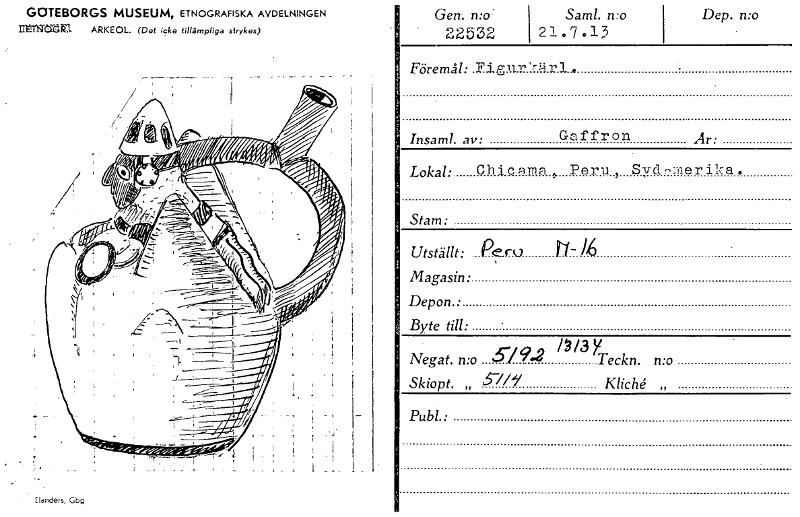 GÖTEBORGS MUSEUM, ETNOGRAFISKA AVDELNINGEN
ETNOGR. ARKEOL. (Det icke tillämpliga strykes)
Gen. n:o Saml. n:o Dep. n:o
22532 21.7.13
Föremål: Figurkärl.
Insaml. av: Gaffron År:
Lokal: Chicama, Peru, Sydamerika.
Stam:
Utställt: Peru M-16
Magasin:
Depon.:
Byte till:
Negat. n:o 5192 13134 Teckn. n:o
Skiopt. „ 5114 Kliché „
Publ.:
Elanders, Gbg